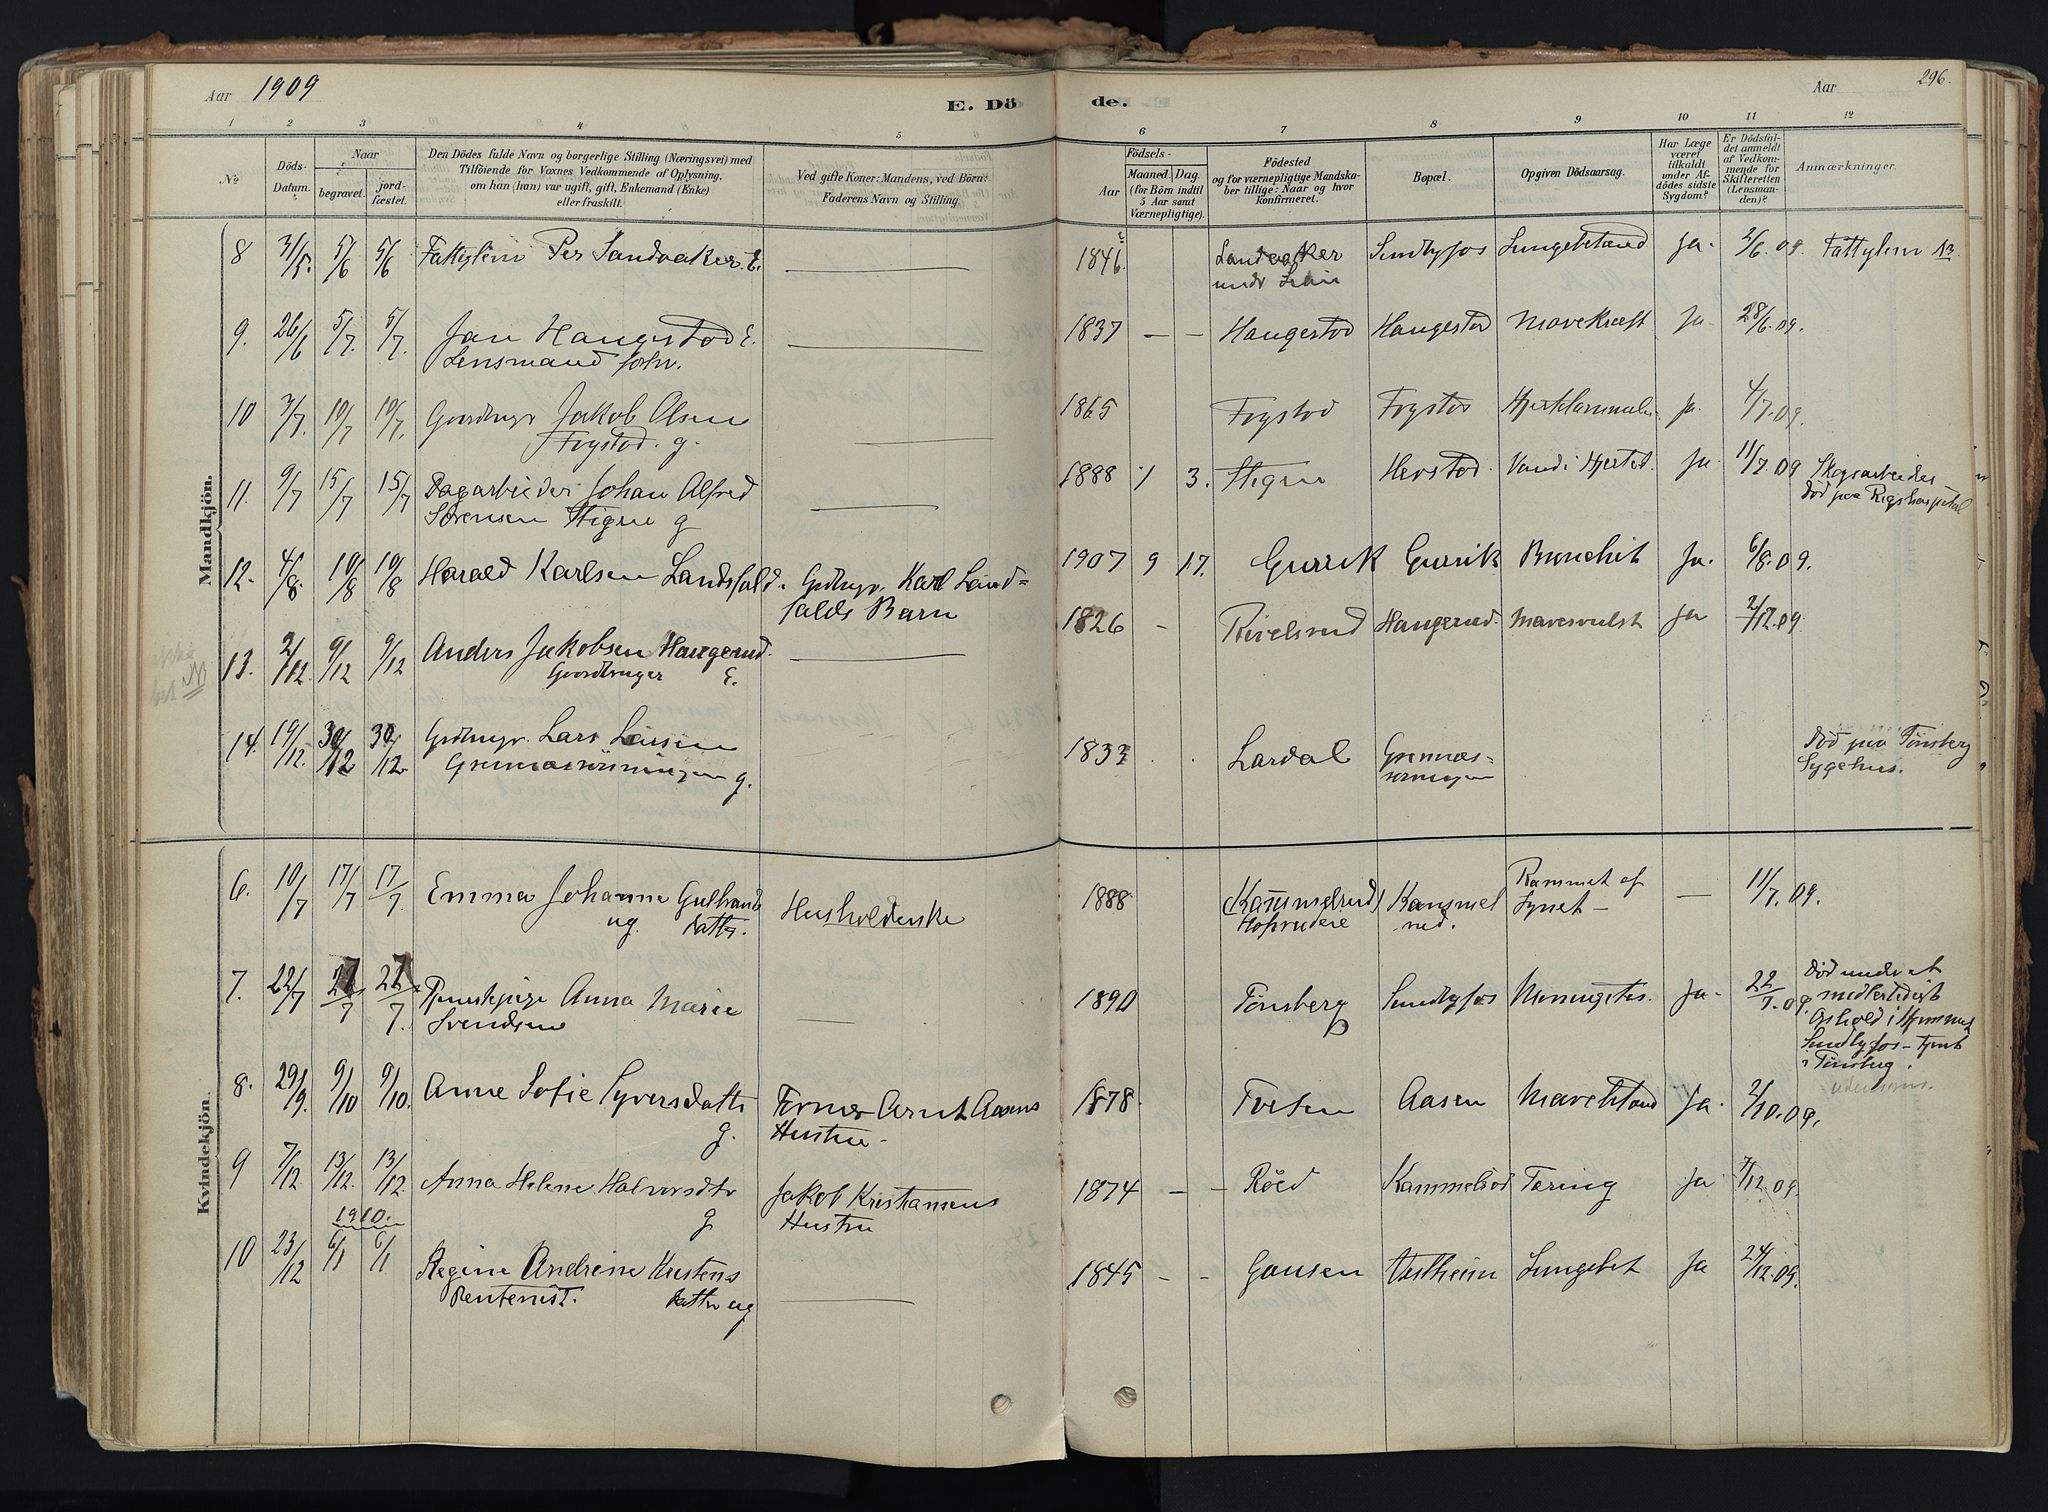 Aar 1909
E. Dö
de.
Aar
296.
1 2 3 4 5
6 7 8 9 10 11 12
No
Döds-
Datum.
Naar
begravet.
jord-
fæstet.
Den Dödes fulde Navn og borgerlige Stilling (Næringsvei) med
Tilföiende for Voxnes Vedkommende af Oplysning,
om han (hun) var ugift, gift, Enkemand (Enke)
eller fraskilt.
Ved gifte Koner: Mandens, ved Börn:
Faderens Navn og Stilling.
Födsels-
Aar
Maaned. Dag.
(for Börn indtil
5 Aar samt
Værnepligtige).
Födested
og for værnepligtige Mandska-
ber tillige: Naar og hvor
konfirmeret.
Bopæl.
Opgiven Dödsaarsag.
Har Læge
været
tilkaldt
under Af-
dödes sidste
Sygdom?
Er Dödsfal-
det anmeldt
af Vedkom-
mende for
Skifteretten
(Lensman-
den)?
Anmærkninger.
Mandkjön.
8 31/5. 5/6 5/6 Fattiglem Per Sandvaker. E. 1846. Sandvaker Sundbyfos Lungebetænd Ja. 2/6. 09. Fattylem
9. 26/6 5/7. 5/7. Jan Haugestad E. 1837 — — Haugestod Haugestod Mavekræft Ja. 28/6.09.
Lensmand
10 3/7. 10/7 10/7. Gaardbrugr Jakob Olsen 1865 Fogstod Fogstod Ja. 4/7.09.
Fogstod. g.
11. 9/7 15/7 15/7 Dagarbeider Johan Alfred 1888 1 3. Stigen Herstad. Vand i Hjertet. Ja. 11/7.09 Skogsarbeider
Sörensen Stigen g død paa Rigshospital
12. 4/8. 10/8 10/8 Harald Karlsen Landsfald. Grdbrgr. Karl Land= 1907 9 17. Gravik Gravik Bronchit Ja. 6/8.09.
falds Barn
13. 2/12. 9/12 9/12 Anders Jakobsen Haugerud. 1826 — Haugerud. Mavesvulst Ja 2/12.09.
Gaardbruger E.
14. 19/12. 30/12 30/12. Grdbrugr. Lars Larsen 1833 . . Lardal Grennes= Død paa Tönsberg
g. Sygehus.
Kvindekjön.
6. 10/7 17/7 17/7. Emma Johanne Gulbrands 1888 Kammelrud Kammel Rammet af — 11/7.09.
ug. datter. Husholderske rud. Lynet —
7. 22/7 27/7 27/7. Tjenestepige Anna Marie 1890 Tønsberg Sundbyfos Ja. 22/7.09. Død under et
Svendsen — midlertidigt
Ophold i Hjemmet
Sundbyfos —
i Tønsberg.
8. 29/9. 9/10 9/10. Anne Sofie Syversdatter Former Arnt Aasens 1878. Tveten Aasen Ja. 2/10.09.
g. Hustru —
9 7/12. 13/12. 13/12. Anna Helene Halvorsdtr Jakob Kristiansens 1874 — — Röed Kammelrod Tæring Ja 7/12.09.
g. Hustru
1910.
10 23/12 6/1 6/1 Regine Andrine Kristens 1845 — — Gausen Vestheim Lungebet Ja 24/12.09.
Rentenist. datter ug